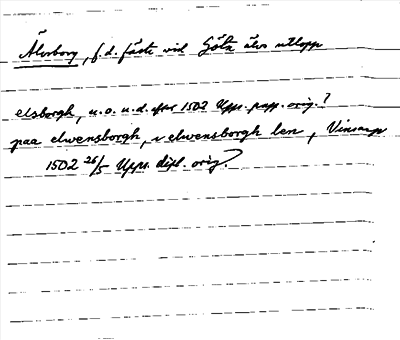 Älvsborg, f.d. fäste vid Göta älvs utlopp
elsborgh, u.o. u.d. efter 1502 Upps. papp. orig.?
paa elwensborgh, v elwensborgh len,
1502 26/5 Upps. dipl. orig?